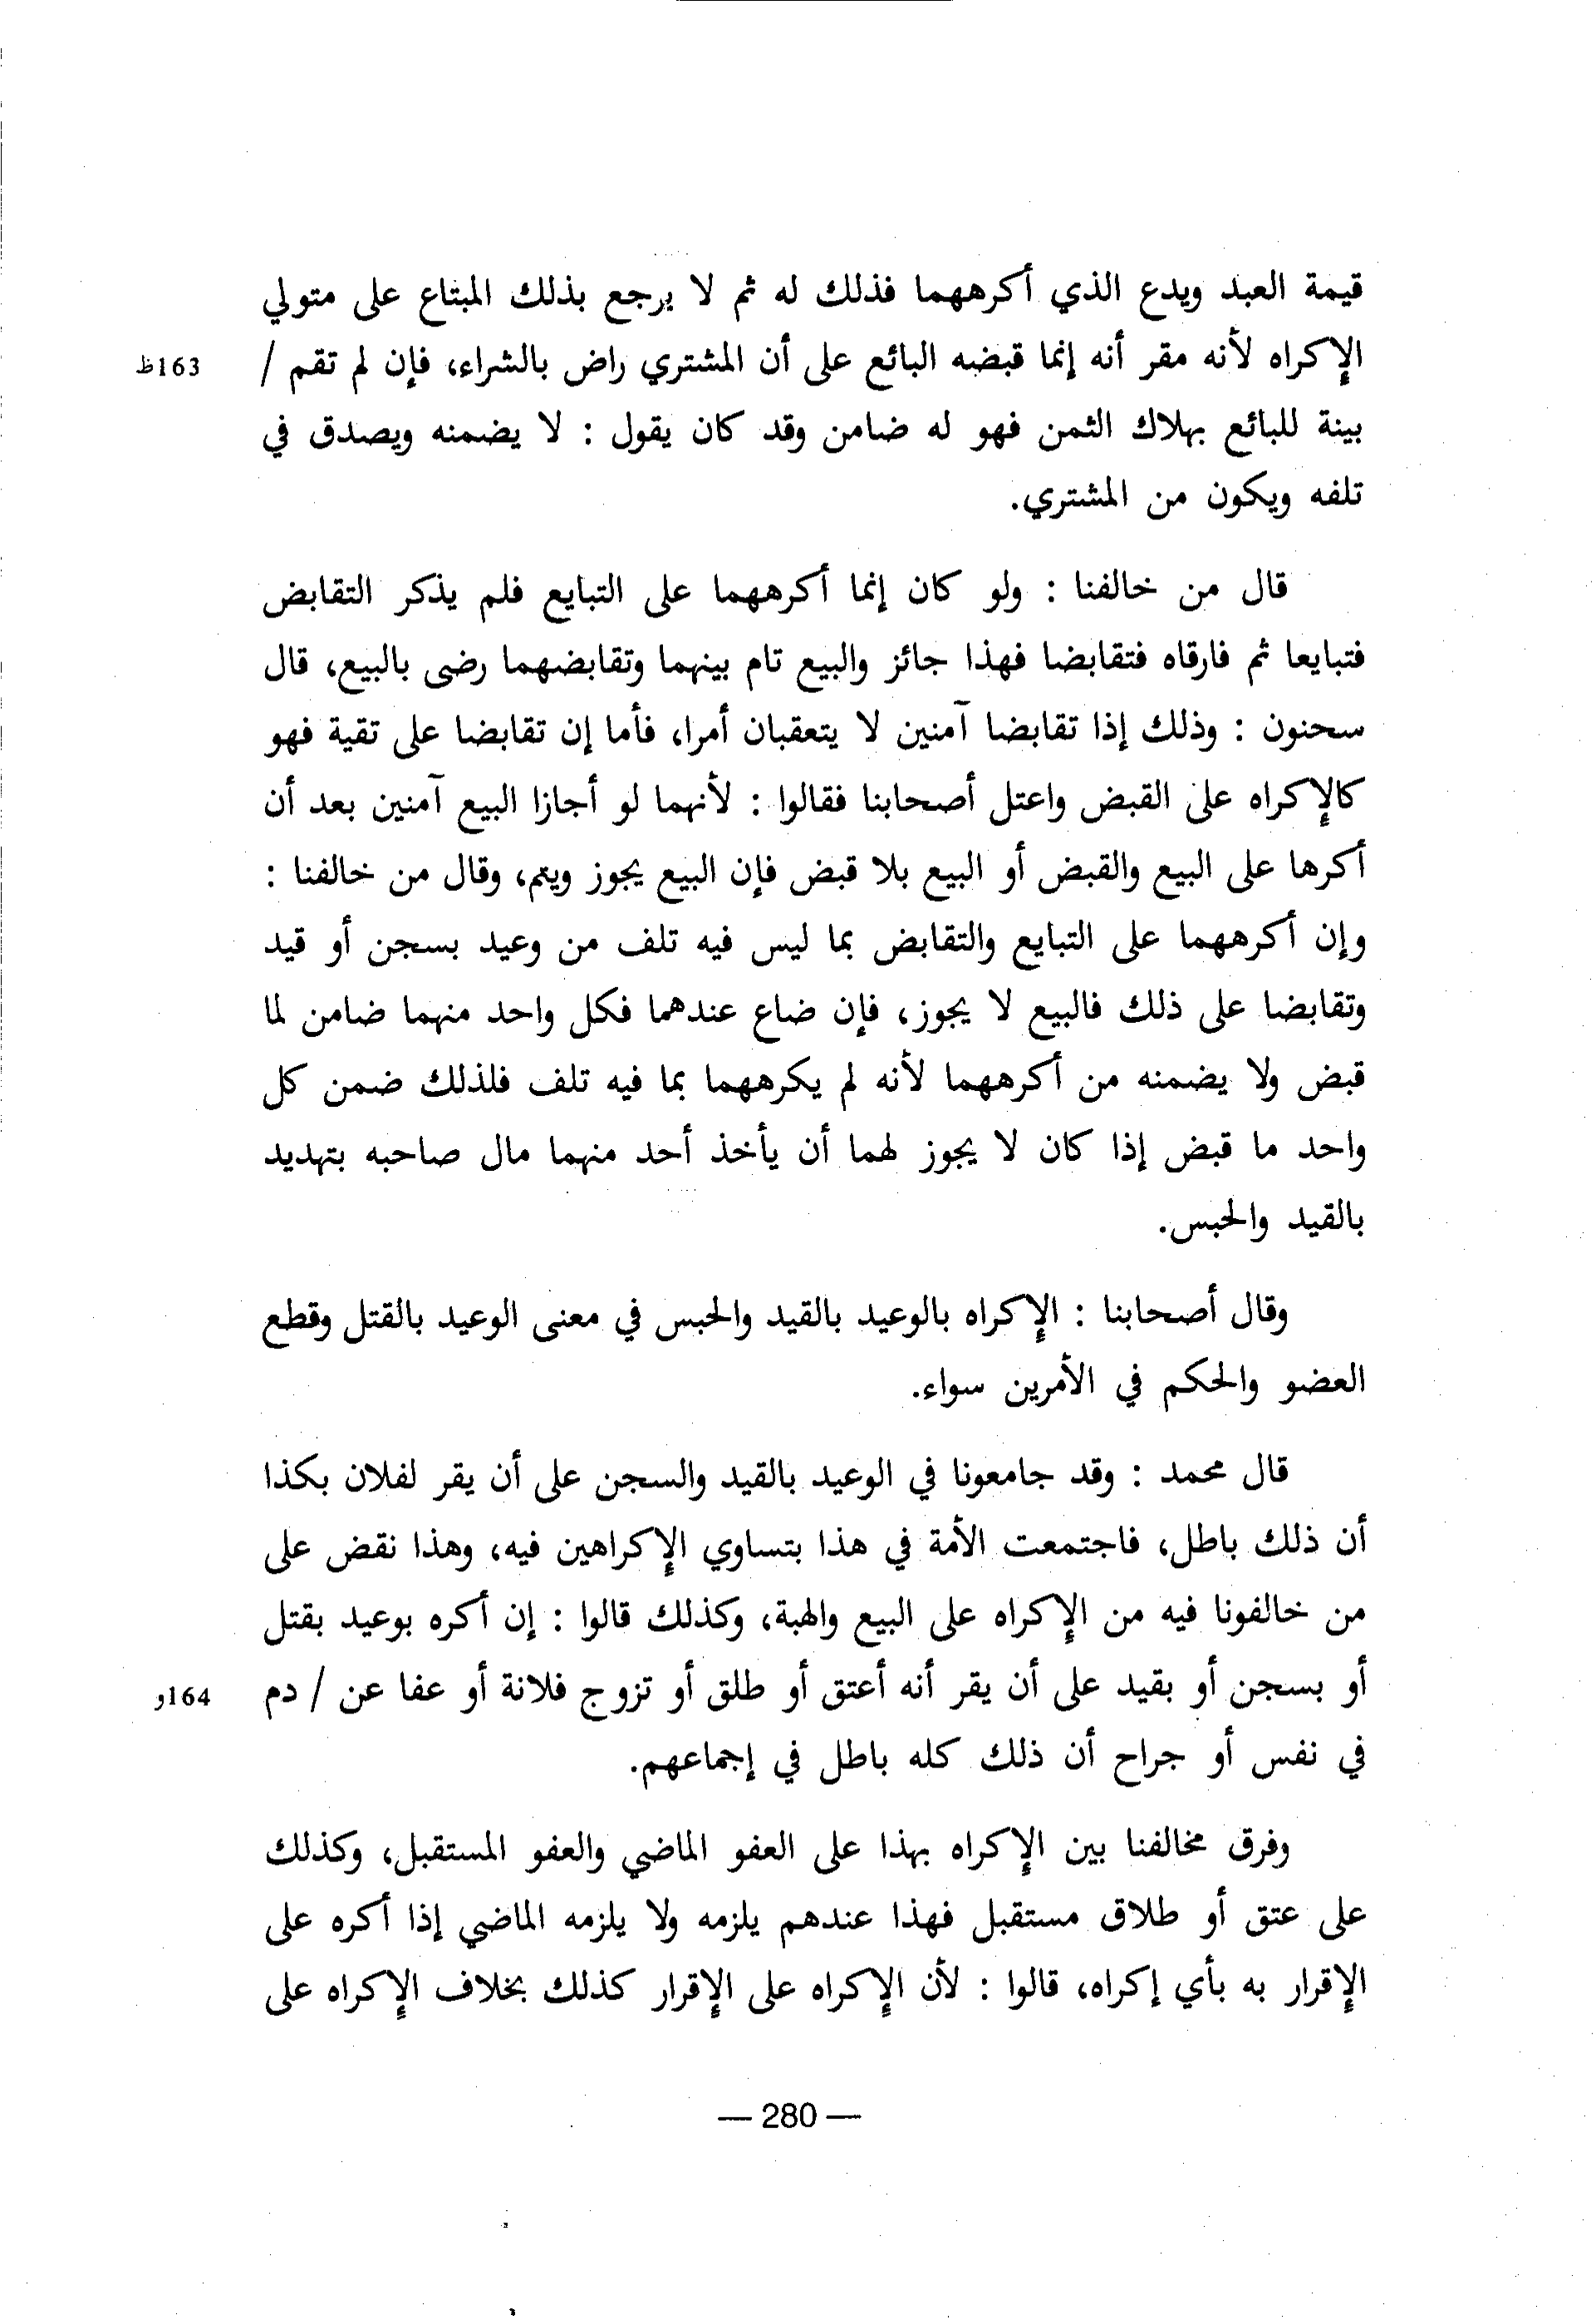 قيمة العبد ويدع الذي أكرههما فذلك له ثم لا يرجع بذلك المبتاع على متولي
الإكراه لأنه مقر أنه إنما قبضه البائع على أن المشتري راض بالشراء، فإن لم تقم / 163ظ
بينة للبائع بهلاك الثمن فهو له ضامن وقد كان يقول : لا يضمنه ويصدق في
تلفه ويكون من المشتري.
قال من خالفنا : ولو كان إنما أكرههما على التبايع فلم يذكر التقابض
فتبايعا ثم فارقاه فتقابضا فهذا جائز والبيع تام بينهما وتقابضهما رضى بالبيع، قال
سحنون : وذلك إذا تقابضا آمنين لا يتعقبان أمرا، فأما إن تقابضا على تقية فهو
كالإكراه على القبض واعتل أصحابنا فقالوا : لأنهما لو أجازا البيع آمنين بعد أن
أكرها على البيع والقبض أو البيع بلا قبض فإن البيع يجوز ويتم، وقال من خالفنا :
وإن أكرههما على التبايع والتقابض بما ليس فيه تلف من وعيد بسجن أو قيد
وتقابضا على ذلك فالبيع لا يجوز، فإن ضاع عندهما فكل واحد منهما ضامن لما
قبض ولا يضمنه من أكرههما لأنه لم يكرههما بما فيه تلف فلذلك ضمن كل
واحد ما قبض إذا كان لا يجوز لهما أن يأخذ أحد منهما مال صاحبه بتهديد
بالقيد والحبس.
وقال أصحابنا : الإكراه بالوعيد بالقيد والحبس في معنى الوعيد بالقتل وقطع
العضو والحكم في الأمرين سواء.
قال محمد : وقد جامعونا في الوعيد بالقيد والسجن على أن يقر لفلان بكذا
أن ذلك باطل، فاجتمعت الأمة في هذا بتساوي الإكراهين فيه، وهذا نقض على
من خالفونا فيه من الإكراه على البيع والهبة، وكذلك قالوا : إن أكره بوعيد بقتل
أو بسجن أو بقيد على أن يقر أنه أعتق أو طلق أو تزوج فلانة أو عفا عن / دم 164و
في نفس أو جراح أن ذلك كله باطل في إجماعهم.
وفرق مخالفنا بين الإكراه بهذا على العفو الماضي والعفو المستقبل، وكذلك
على عتق أو طلاق مستقبل فهذا عندهم يلزمه ولا يلزمه الماضي إذا أكره على
الإقرار به بأي إكراه، قالوا : لأن الإكراه على الإقرار كذلك بخلاف الإكراه على
— 280 —